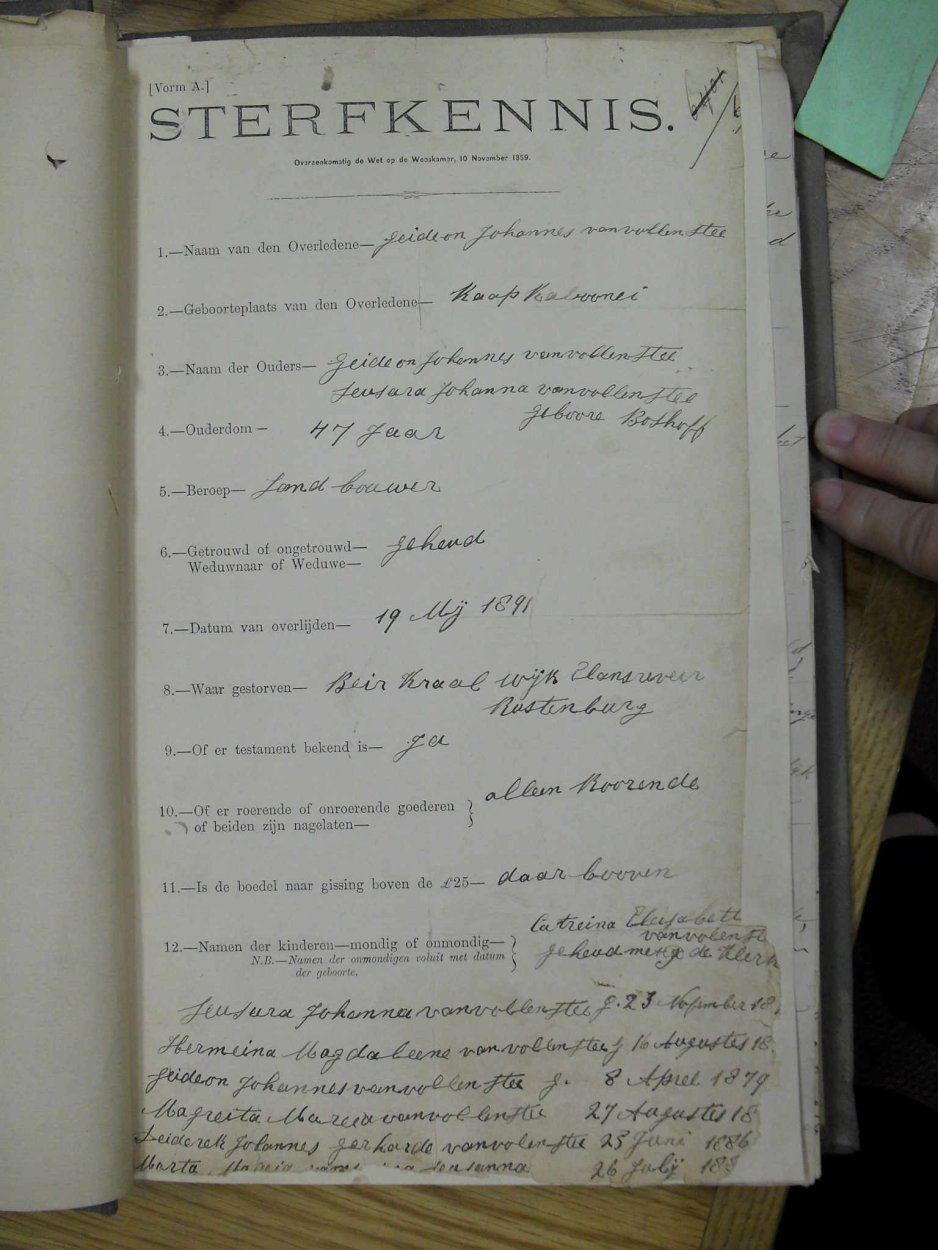 [Vorm A.]
STERFKENNIS.
Overeenkomstig de Wet op de Weeskamer, 10 November 1859.
1.—Naam van den Overledene— Geideon Johannes vanvollenstee
2.—Geboorteplaats van den Overledene— Kaap Kaloonei
3.—Naam der Ouders— Geideon Johannes vanvollenstee
Seusara Johanna vanvollenstee
geboore Boshoff
4.—Ouderdom— 47 Jaar
5.—Beroep— Land bouwer
6.—Getrouwd of ongetrouwd—
Weduwnaar of Weduwe— geheud
7.—Datum van overlijden— 19 Mij 1891
8.—Waar gestorven— Beir Kraal wijk Elansreveir
Rostenburg
9.—Of er testament bekend is— Ja
10.—Of er roerende of onroerende goederen
of beiden zijn nagelaten— alleen Roorende
11.—Is de boedel naar gissing boven de £25— daar booven
12.—Namen der kinderen—mondig of onmondig— Catreina Elisabett
vanvolenst
N.B.—Namen der onmondigen voluit met datum geheud met de Klerk
der geboorte.
Seusara Johanna vanvollenstee g. 23 November 18
Hermeina Magdaleene vanvollenstee g 16 Augustes 18
Geideon Johannes vanvollenstee g. 8 Aprel 1879
Magreita Mareia vanvollenstee 27 Augustes 18
Deiderek Johannes gerharde vanvolenstee 23 Juni 1886
Marta 26 Julij 188